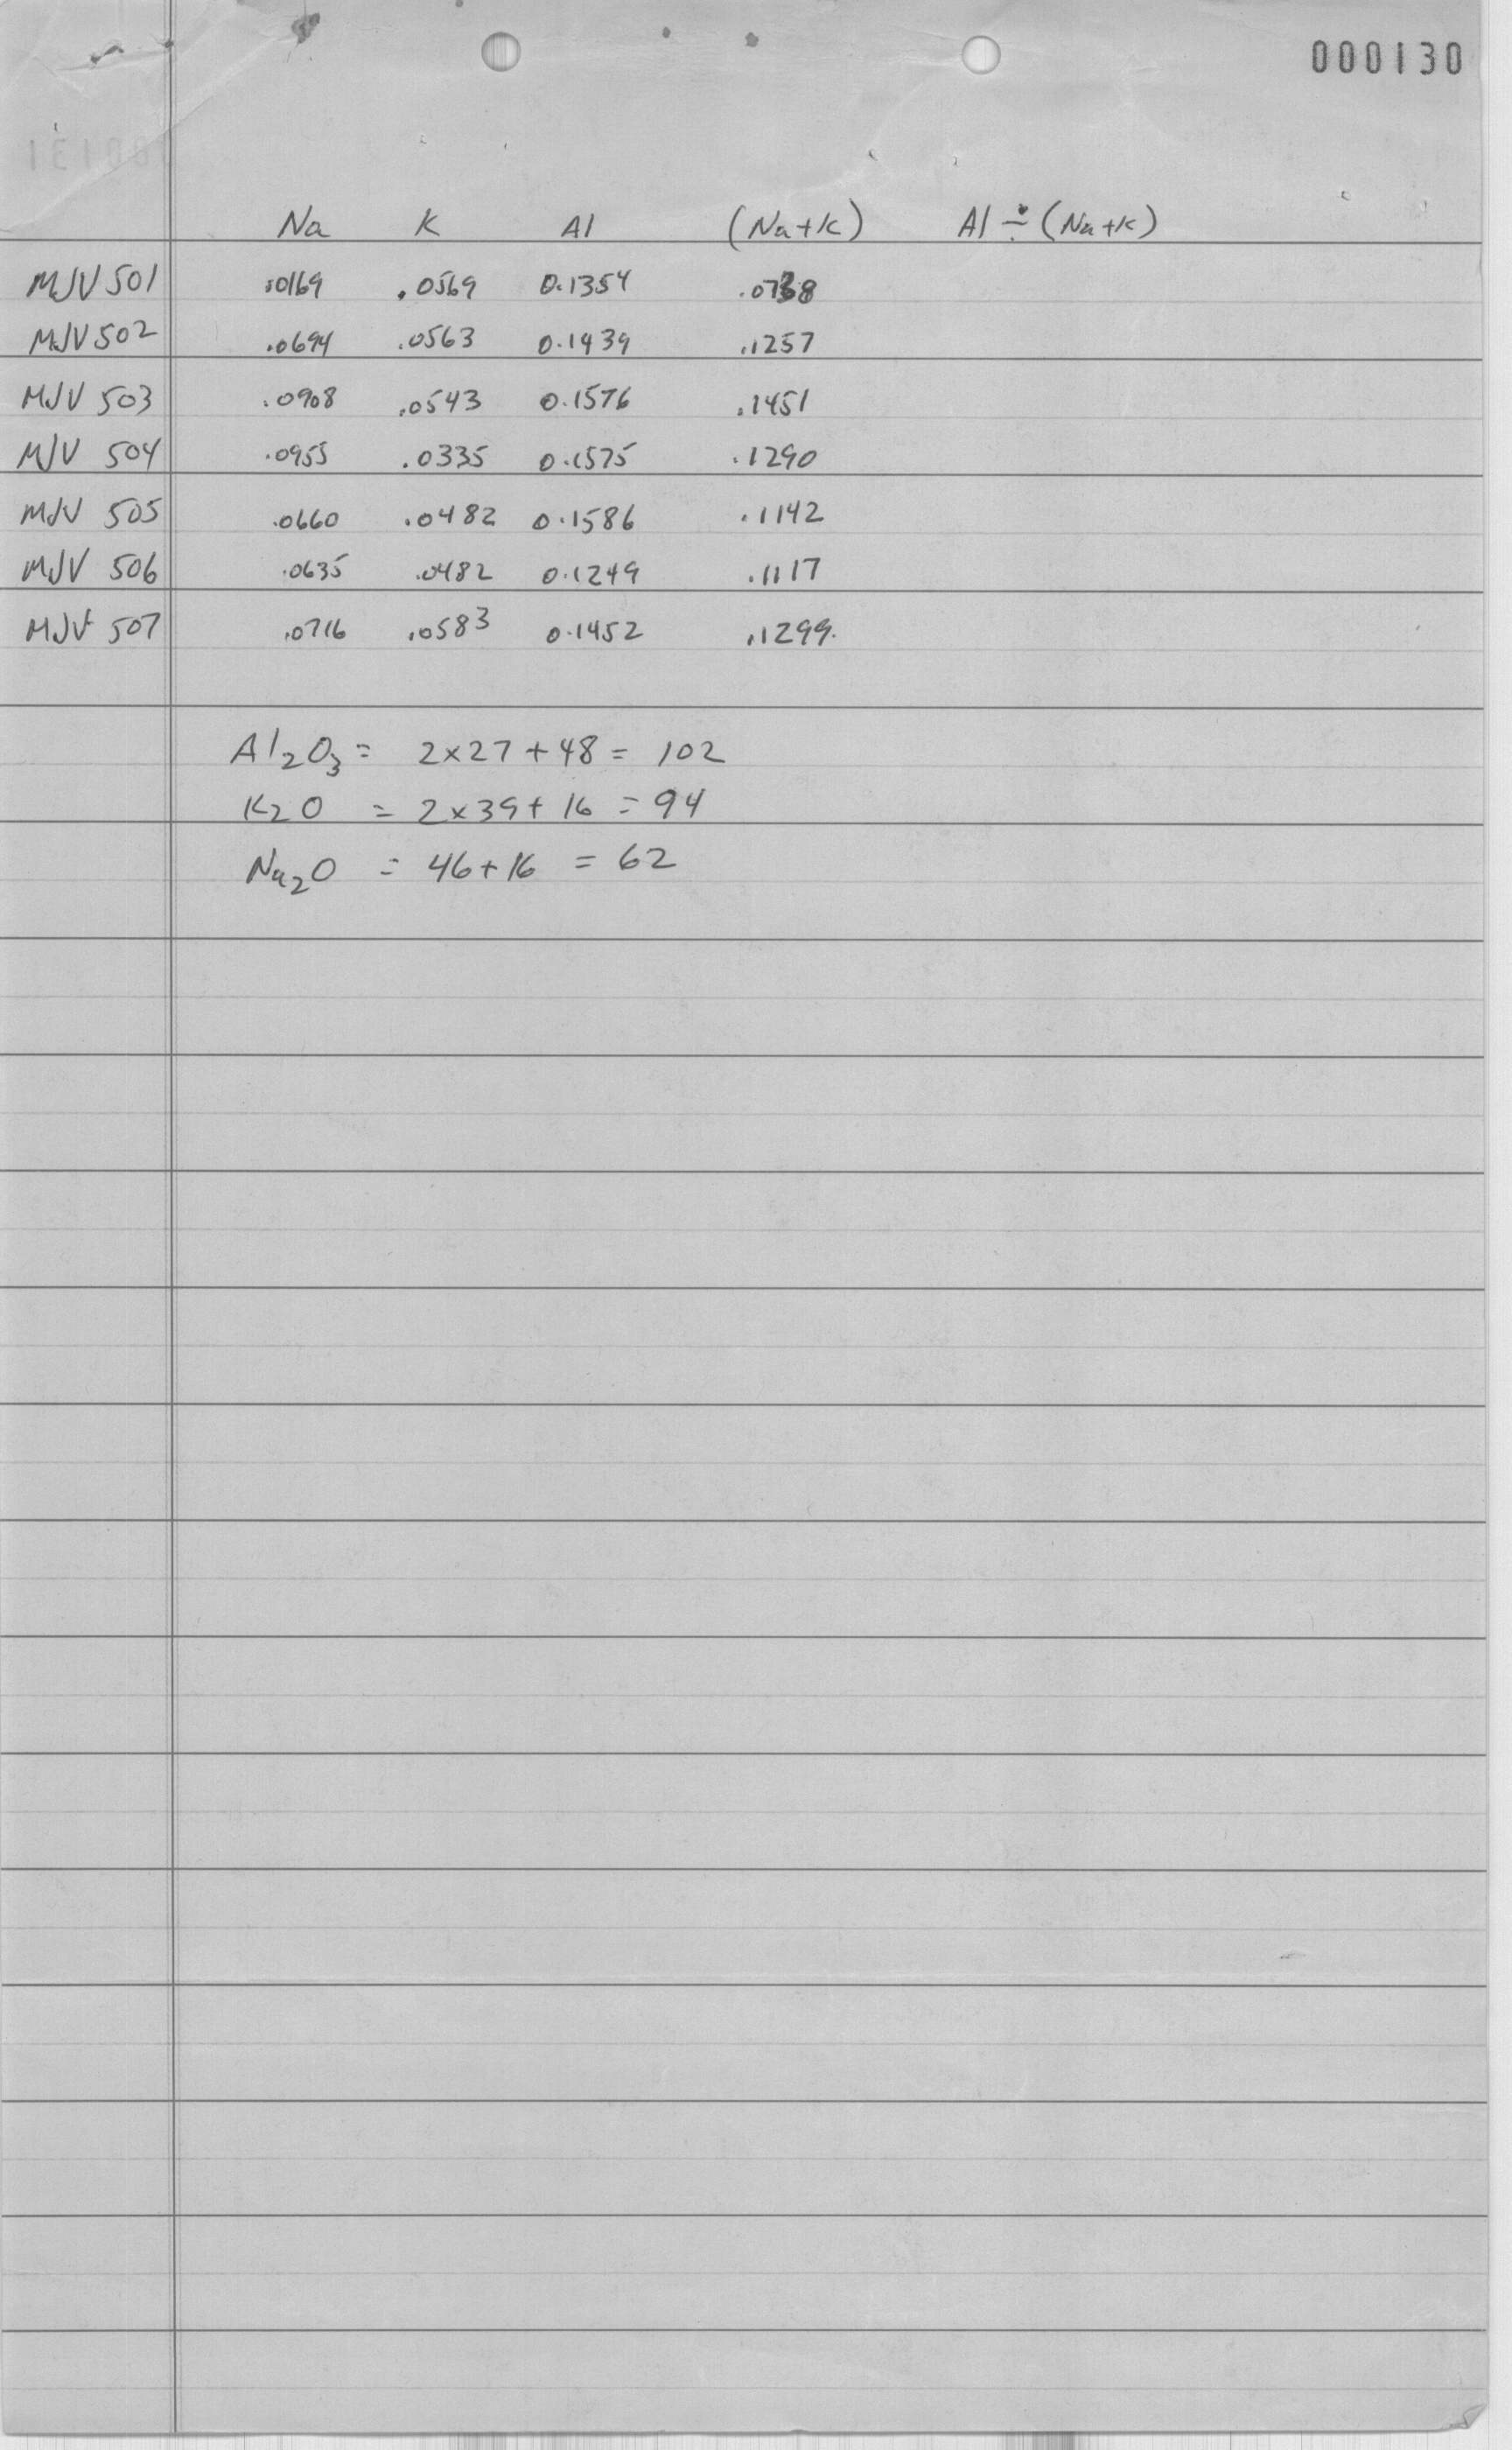 000130
Na K Al (Na+K) Al ÷ (Na+K)
MJV 501 .0169 .0569 0.1354 .0738
MJV 502 .0694 .0563 0.1439 .1257
MJV 503 .0908 .0543 0.1576 .1451
MJV 504 .0955 .0335 0.1575 .1290
MJV 505 .0660 .0482 0.1586 .1142
MJV 506 .0635 .0482 0.1249 .1117
MJV 507 .0716 .0583 0.1452 .1299.
Al₂O₃ = 2×27+48 = 102
K₂O = 2×39+16 = 94
Na₂O = 46+16 = 62